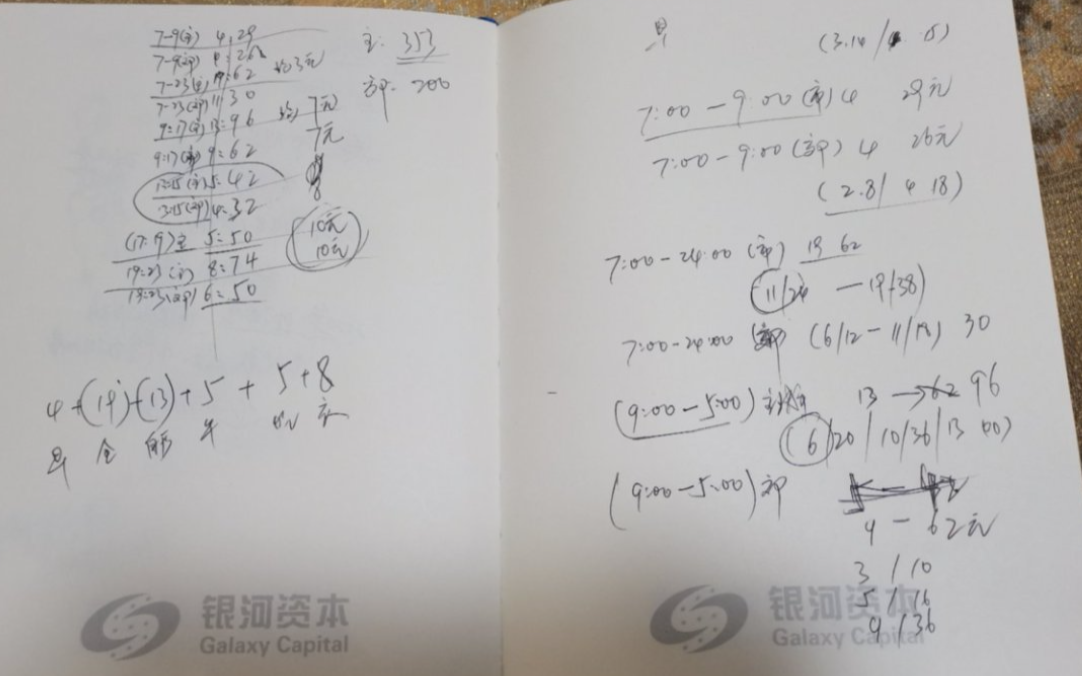 7-9(主) 4.29
7-9(部) 4:26
7-23(主) 19:62 3元
7-23(部) 11:30
9:17(主) 13:96 7元
9:17(部) 9:62 7元
5:42
4:32
(17:19)主 5:50 10元
19:23(主) 8:74 10元
19:23(部) 6:50
主: 353
部: 200
4+(19)+(13)+5 + 5+8
早 全 午
银河资本
Galaxy Capital
早 (3.14/ 5)
7:00-9:00 4 29元
7:00-9:00(部) 4 26元
(2.8/ 4 18)
7:00-24:00 19 62
(11/24 -19/38)
7:00-24:00 部 (6/12-11/18) 30
(9:00-5:00) 主 13 → 96
(6/20/10/36/13 40)
(9:00-5:00)部
9-62元
3/10
5/16
9/36
银河资本
Galaxy Capital